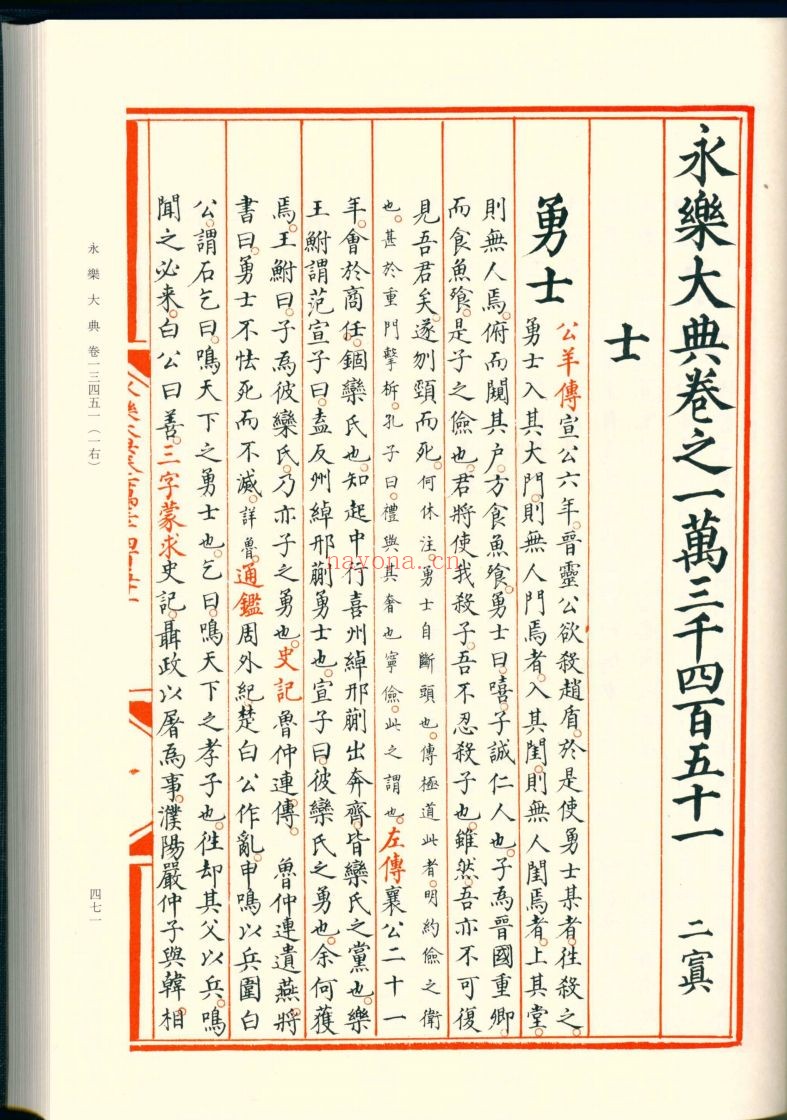 永樂大典卷之一萬三千四百五十一 二寘
士
勇士 公羊傳宣公六年。晉靈公欲殺趙盾。於是使勇士某者。徃殺之。
勇士入其大門。則無人門焉者。入其閨。則無人閨焉者。上其堂。
則無人焉。俯而闚其户。方食魚飱。勇士曰。嘻。子誠仁人也。子為晉國重卿。
而食魚飱。是子之儉也。君將使我殺子。吾不忍殺子也。雖然。吾亦不可復
見吾君矣。遂刎頸而死。何休注。勇士自斷頭也。傳極道此者。明約儉之衛
也。甚於重門擊柝。孔子曰。禮與其奢也寧儉。此之謂也。左傳襄公二十一
年。會於商任。錮欒氏也。知起中行喜州綽邢蒯出奔齊。皆欒氏之黨也。樂
王鮒謂范宣子曰。盍反州綽邢蒯勇士也。宣子曰。彼欒氏之勇也。余何獲
焉。王鮒曰。子為彼欒氏。乃亦子之勇也。史記魯仲連傳。魯仲連遺燕將
書曰。勇士不怯死而不滅。詳魯。通鑑周外紀。楚白公作亂。申鳴以兵圍白
公。謂石乞曰。鳴天下之勇士也。乞曰。鳴天下之孝子也。徃却其父以兵。鳴
聞之必来。白公曰善。三字蒙求史記。聶政以屠為事。濮陽嚴仲子與韓相
永樂大典 卷一三四五一（一右）
四七一
nayona.cn